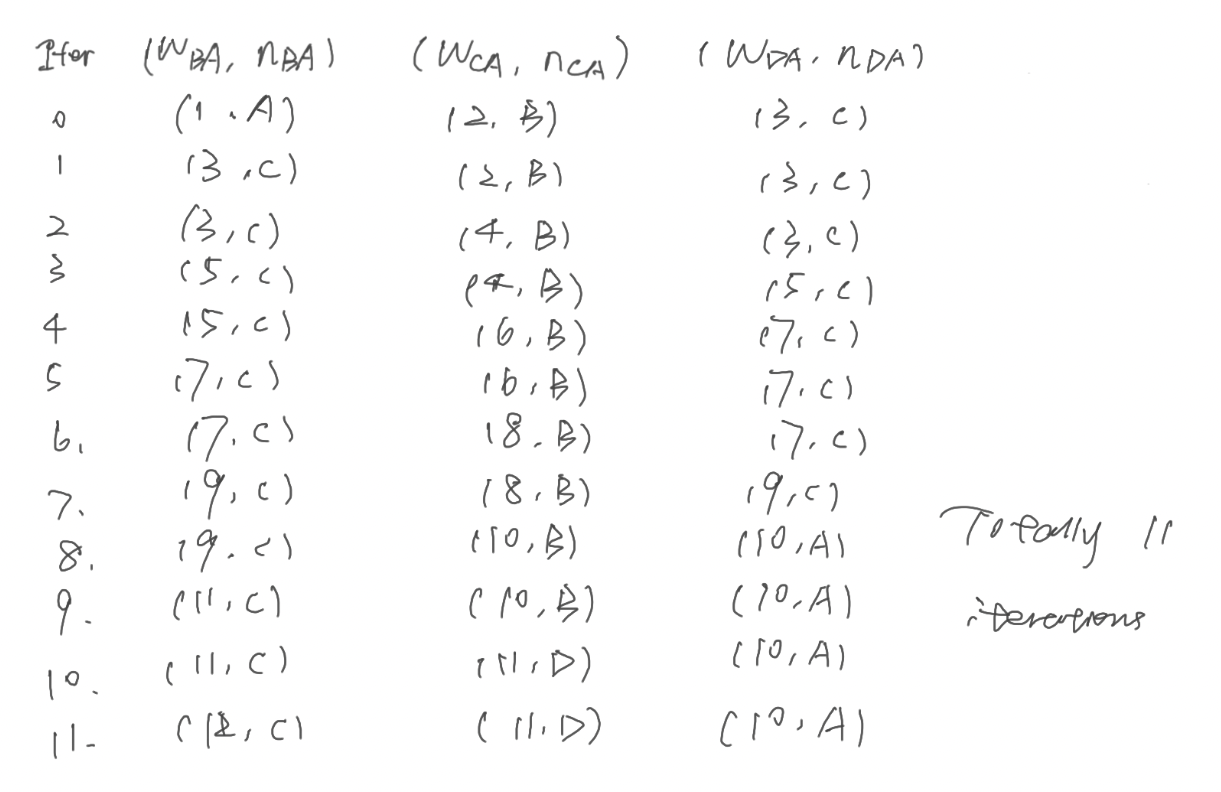 Iter (W_BA, n_BA) (W_CA, n_CA) (W_DA, n_DA)
0 (1, A) (2, B) (3, C)
1 (3, C) (2, B) (3, C)
2 (3, C) (4, B) (3, C)
3 (5, C) (4, B) (5, C)
4 (5, C) (6, B) (7, C)
5 (7, C) (6, B) (7, C)
6. (7, C) (8, B) (7, C)
7. (9, C) (8, B) (9, C)
8. (9, C) (10, B) (10, A)
9. (11, C) (10, B) (10, A)
10. (11, C) (11, D) (10, A)
11. (12, C) (11, D) (10, A)
Totally 11
iterations